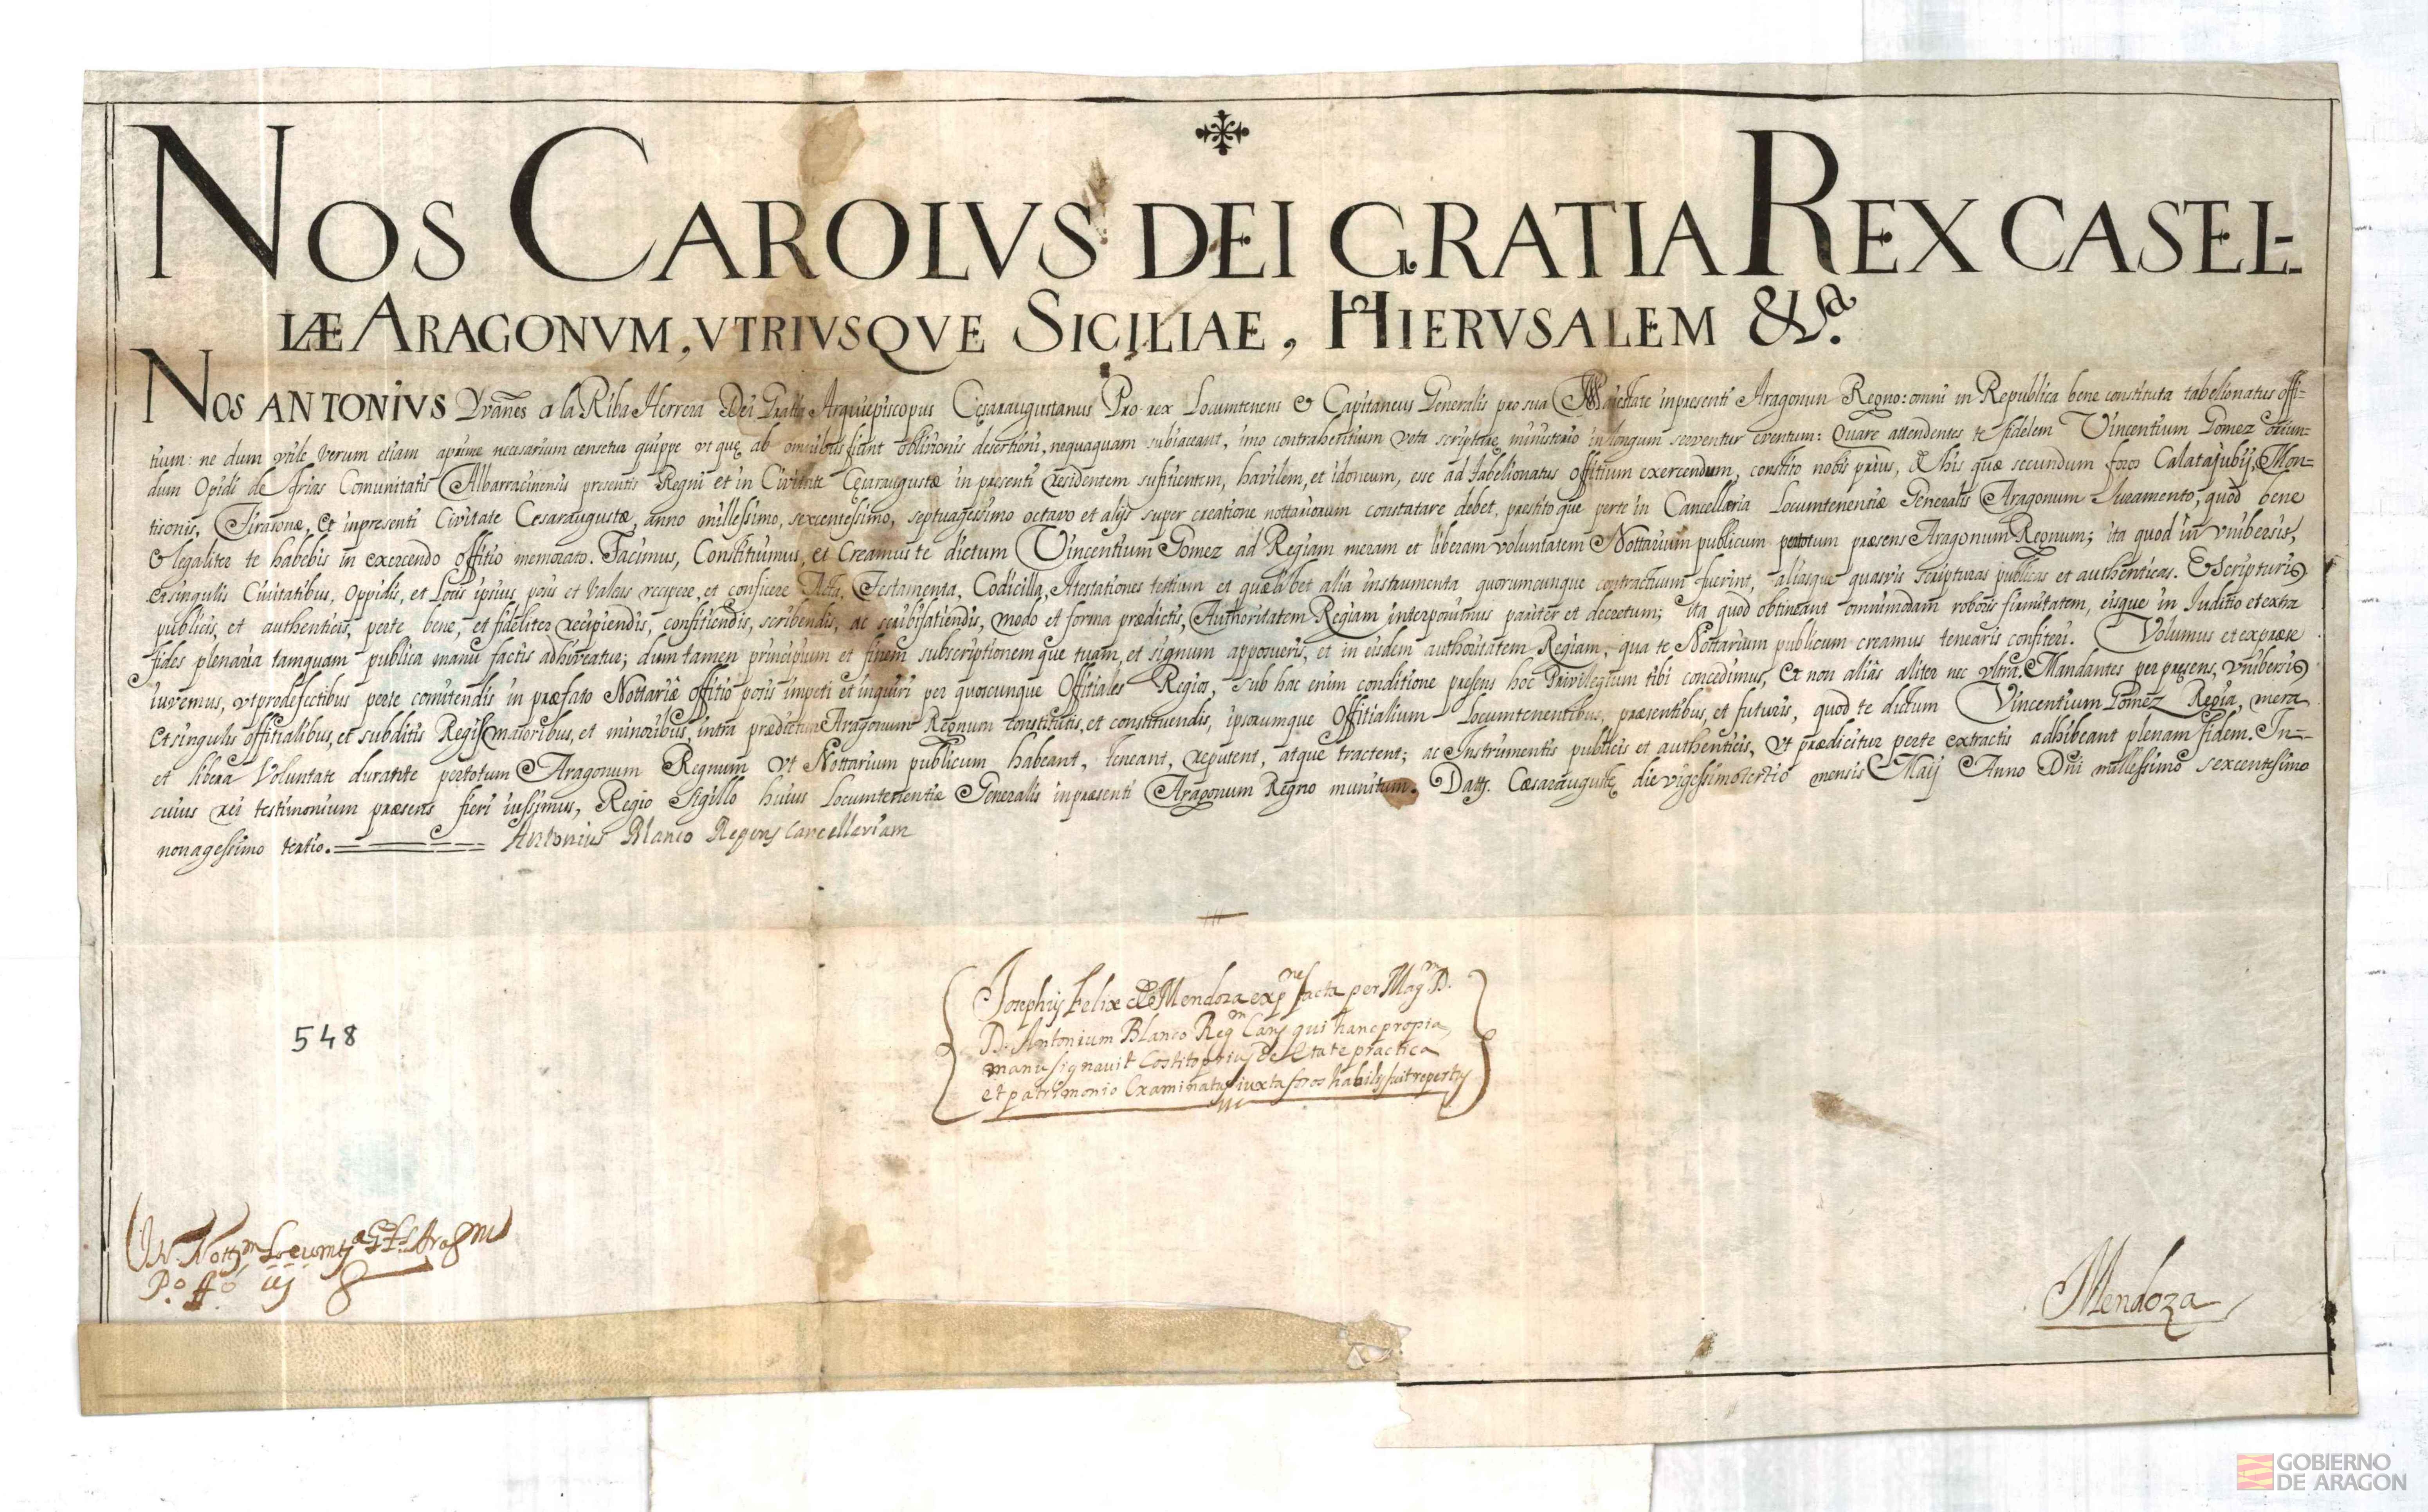 NOS CAROLVS DEI GRATIA REX CASEL-
LÆ ARAGONVM, VTRIVSQVE SICILIAE, HIERVSALEM &ª.
NOS ANTONIVS Yvañes a la Riba Herrera Dei Gratia Arquiepiscopus Cęsaraugustanus Pro-rex Locumtenens & Capitaneus Generalis pro sua Majestate inpresenti Aragonun Regno: omni in Republica bene constituta tabelionatus offi-
tium: ne dum vtile verum etiam aprime necesarium censetur quippe vt quę ab omnibus fiant oblivionis desertioni, nequaquam subiaceant, imo contrahentium vota scripturae ministerio in longum serventur eventum: Quare attendentes te fidelem Vincentium Gomez oriun-
dum Opidi de frias Comunitatis Albarracinensis presentis Regni et in Civitate Cęsaraugustæ in presenti residentem sufitientem, havilem, et idoneum, esse ad tabelionatus offitium exercendum, constito nobis prius, de his quæ secundum foros Calatajubij, Mon-
tisonis, Tirasonæ, et inpresenti Civitate Cesaraugustæ, anno millessimo, sexcentessimo, septuagessimo octavo et alijs super creatione nottariorum constatare debet, prestito que perte in Cancellaria Locumtenentiæ Generalis Aragonum Juramento, quod bene
& legaliter te habebis in exercendo offitio memorato. Facimus, Constituimus, et Creamus te dictum Vincentium Gomez ad Regiam meram et liberam voluntatem Nottarium publicum pertotum præsens Aragonum Regnum; ita quod in vnibersis,
et singulis Civitatibus, Oppidis, et Locis ipsius, posis et valeas recipere, et conficere Acta, Testamenta, Codicilla, Atestationes testium et quælibet alia instrumenta quorumcunque contractuum fuerint, aliasque quasvis scripturas publicas et authenticas. Et Scripturis
publicis, et authenticis, perte bene, et fideliter recipiendis, confitiendis, scribendis, ac scribifatiendis, modo et forma prædictis, Authoritatem Regiam interponimus pariter et decretum; ita quod obtineant omnimodam roboris firmitatem, eisque in Juditio et extra
fides plenaria tamquam publica manu factis adhiveatur; dum tamen principium et finem subscriptionem que tuam, et signum apposueris, et in eisdem authoritatem Regiam, qua te Nottarium publicum creamus tenearis confiteri. Volumus et expræse
iuvemus, vt pro defectibus perte comitendis in præfato Nottariæ offitio posis impeti et inquiri per quoscunque Offitiales Regios, sub hac enim conditione presens hoc Privilegium tibi concedimus, et non alias aliter nec vltra. Mandantes per presens, vnibersis
et singulis offitialibus, et subditis Regijs maioribus, et minoribus, intra prædictum Aragonum Regnum constitutis, et constituendis, ipsorumque Offitialium Locumtenentibus, præsentibus, et futuris, quod te dictum Vincentium Gomez Regia, mera
et libera Voluntate durante pertotum Aragonum Regnum vt Nottarium publicum habeant, teneant, reputent, atque tractent; ac Instrumentis publicis et authenticis, vt prædicitur perte extractis adhibeant plenam fidem. In-
cuius rei testimonium præsens fieri iussimus, Regio Sigillo huius Locumtenentiæ Generalis inpræsenti Aragonum Regno munitum. Datt. Cæsaraugustę die vigessimo tertio mensis Maij Anno Dni millessimo sexcentesimo
nonagessimo tertio. Antonius Blanco Regens Cancelleriam
Josephus Felix de Mendoza exp.ne facta per Mag.m D.
D. Antonium Blanco Reg.m Canç qui hanc propia
manu signavit Costito prius de etate practica
et patrimonio Examinatus iuxta foros habilis fuit repertus
548
In Nott.m Locumt.a G.lis Aragonu
P.º fº iij
Mendoza
GOBIERNO
DE ARAGON